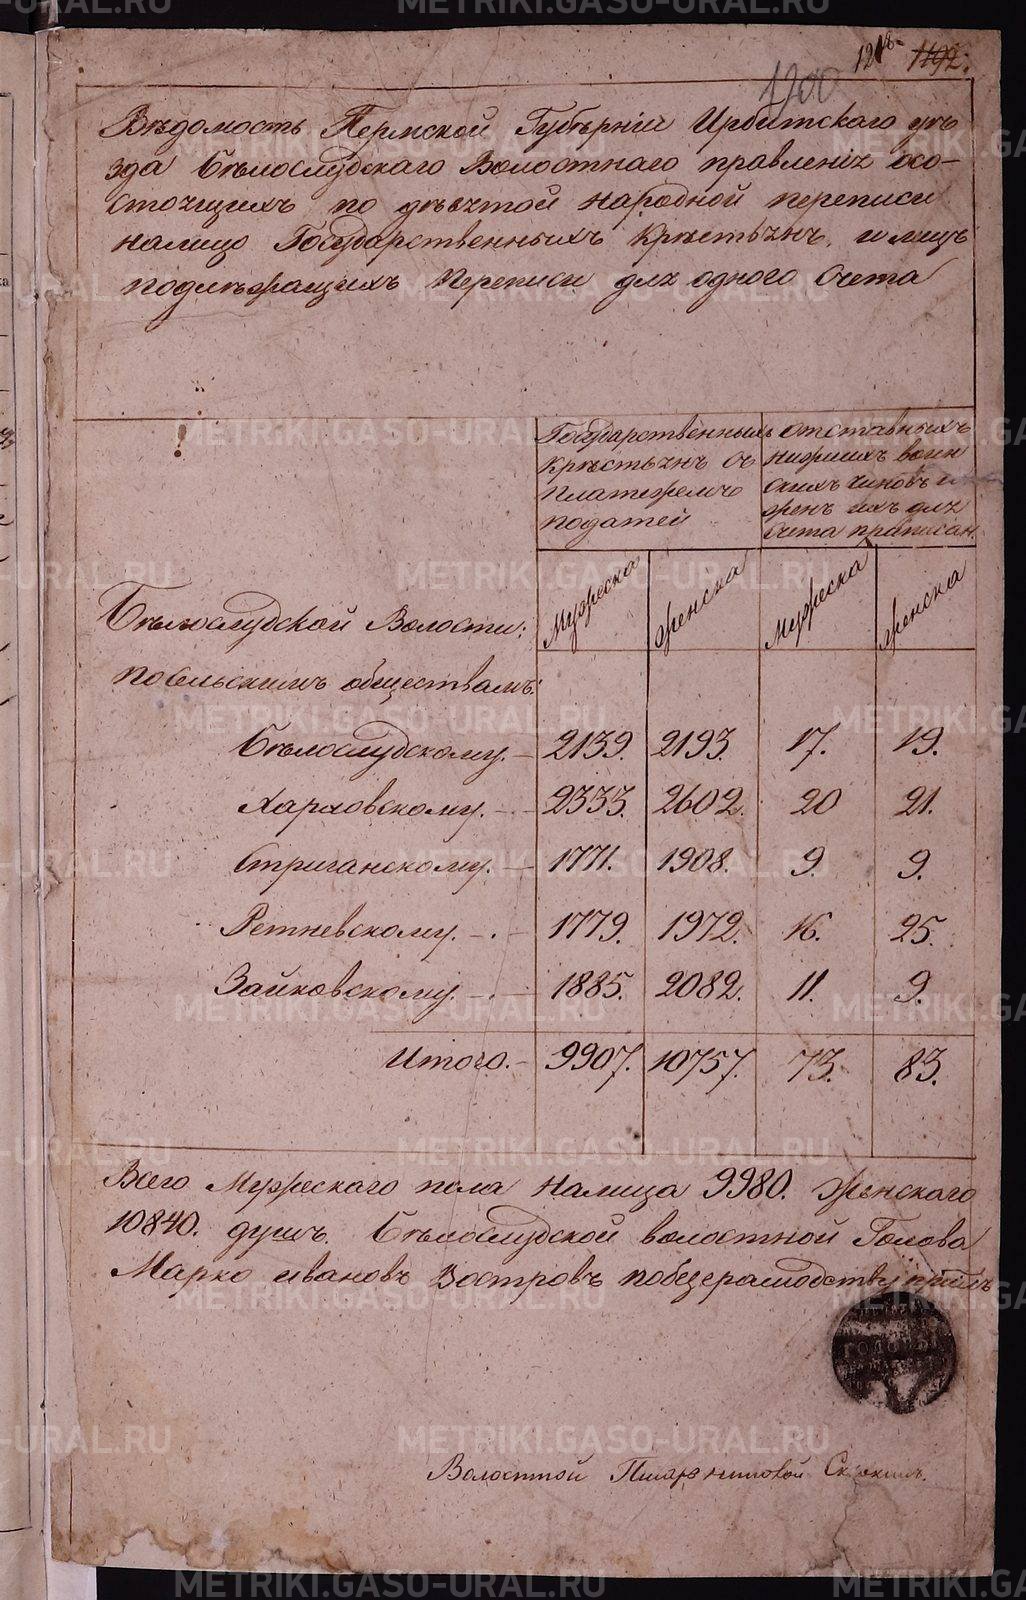 1218
1192.
1200
Вѣдомость Пермской Губѣрніи Ирбитского уѣ
зда Бѣлослудского Волостнаго правленія о со-
стоящихъ по девятой народной переписи
налицо Государственныхъ Крѣстьянъ, и лицъ
подлѣжащихъ переписи для одного счета
Государственныхъ
Крѣстьянъ съ
платежемъ
податей
отставныхъ
нижнихъ воин
скихъ чиновъ и
женъ ихъ для
счета приписан.
Бѣлослудской Волости:
Мужеска
женска
Мужеска
женска
по Сельскимъ обществамъ:
Бѣлослудскому. — 2139. 2193. 17. 19.
Харловскому. — 2333. 2602. 20 21.
Стриганскому. — 1771. 1908. 9. 9.
Ретневскому. — 1779. 1972. 16. 25.
Зайковскому. — 1885. 2082. 11. 9.
Итого. — 9907. 10757. 73. 83.
Всего Мужескаго пола Налицо 9980. Женскаго
10840. душъ. Бѣлослудской волостной Голова
Марко Ивановъ Востровъ
Волостной Писарь
METRIKI.GASO-URAL.RU